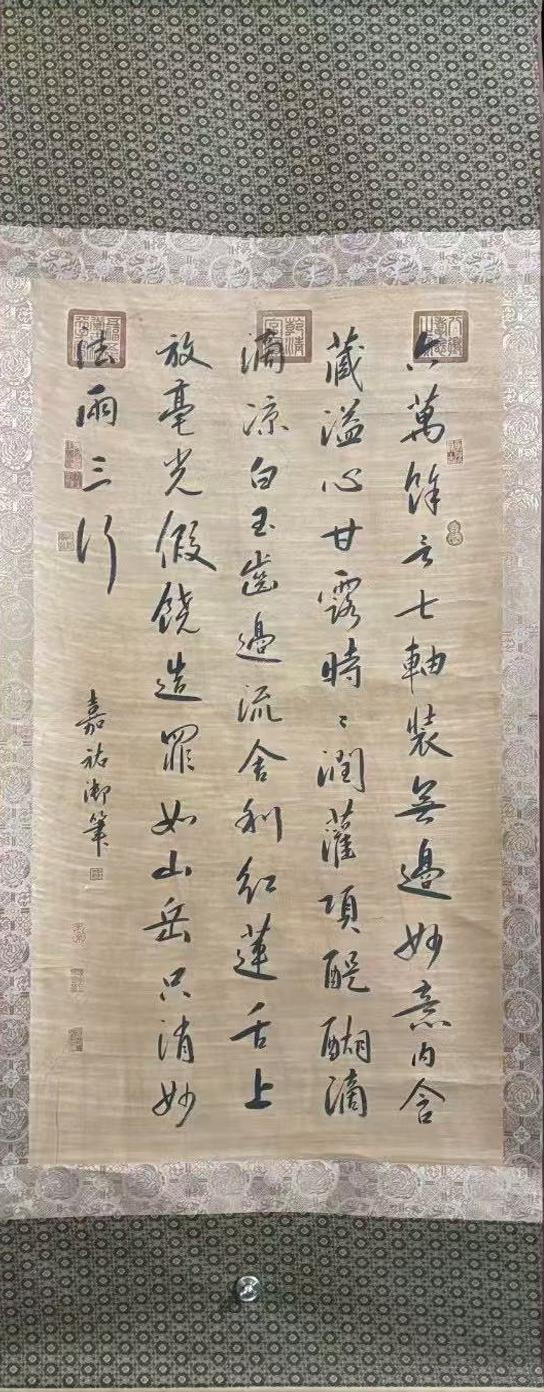 六萬餘言七軸裝無邊妙意内含
藏溢心甘露時〻潤灌項醍醐滴
滴凉白玉齒邊流舍利紅蓮舌上
放毫光假饒造罪如山岳只消妙
法雨三行
嘉祐御筆